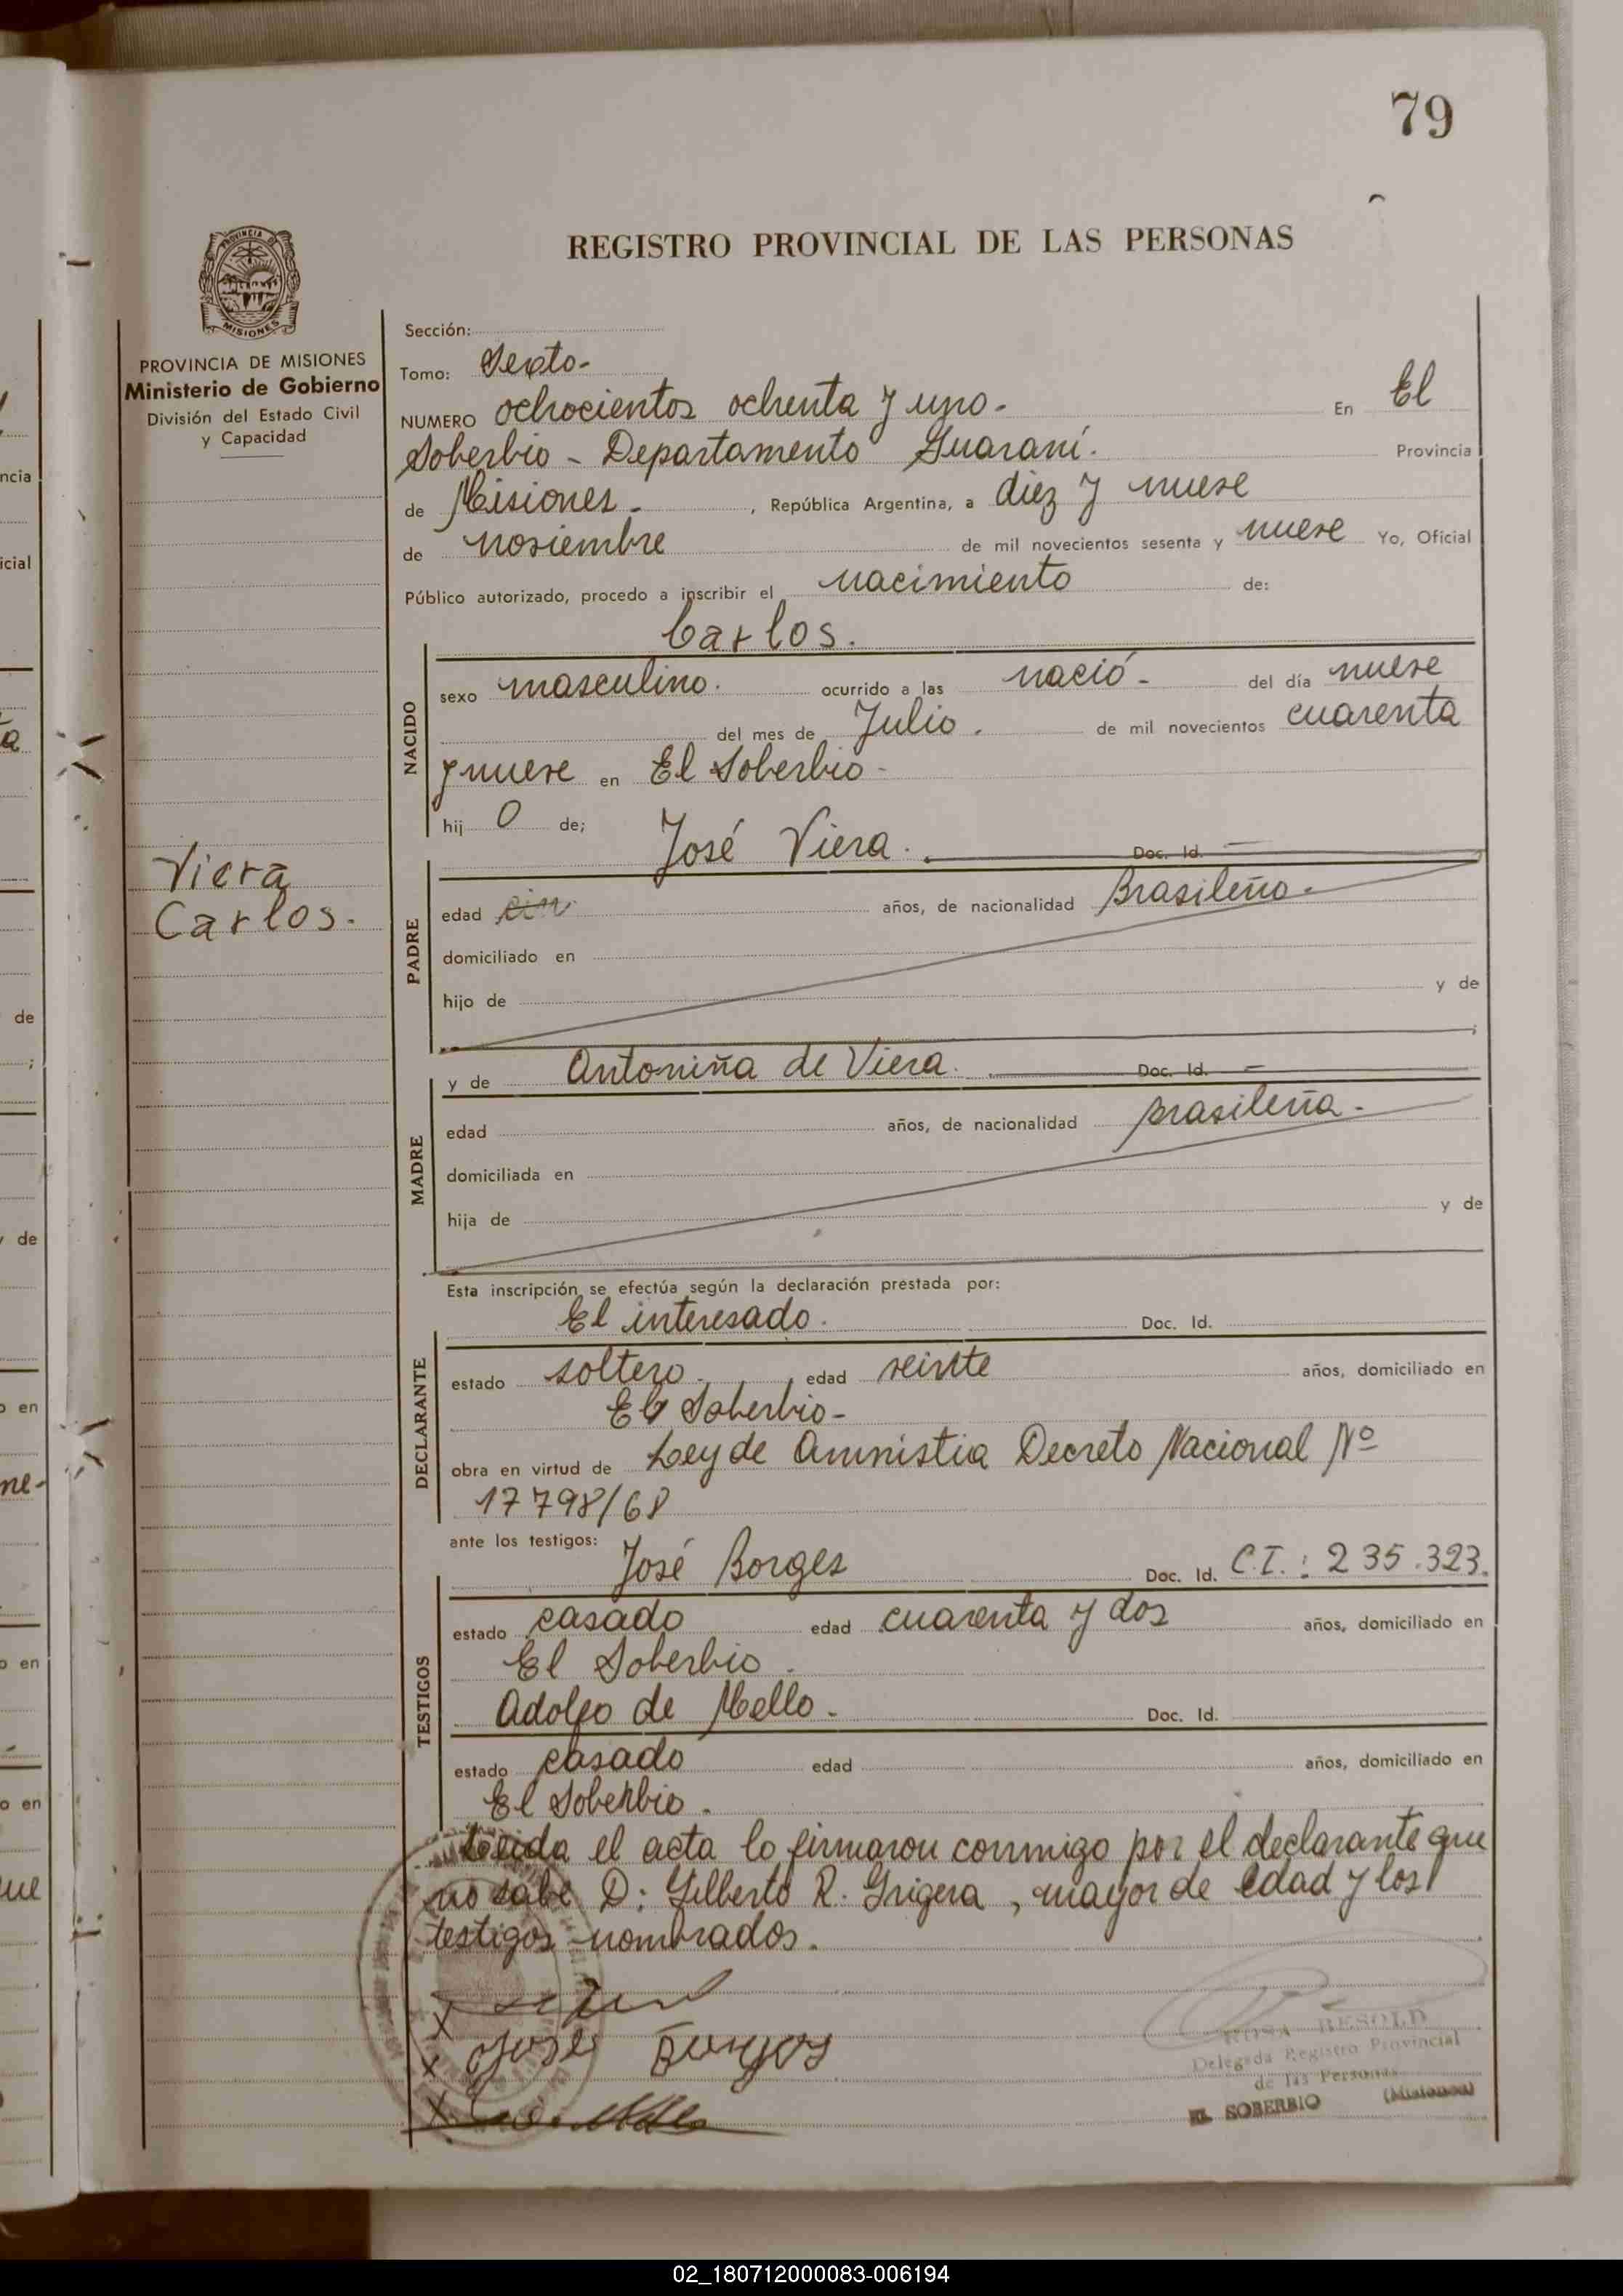 79
REGISTRO PROVINCIAL DE LAS PERSONAS
PROVINCIA DE
MISIONES
PROVINCIA DE MISIONES
Ministerio de Gobierno
División del Estado Civil
y Capacidad
Viera
Carlos.
Sección:
Tomo: Sexto-
NUMERO ochocientos ochenta y uno. En El
Soberbio - Departamento Guaraní. Provincia
de Misiones. , República Argentina, a diez y nueve
de noviembre de mil novecientos sesenta y nueve Yo, Oficial
Público autorizado, procedo a inscribir el nacimiento de:
Carlos.
NACIDO
sexo masculino. ocurrido a las nació- del día nueve
del mes de Julio. de mil novecientos cuarenta
y nueve en El Soberbio-
hij o de;
José Viera. Doc. Id. —
PADRE
edad años, de nacionalidad Brasileño.
domiciliado en
hijo de y de
;
MADRE
y de Antoniña de Viera. Doc. Id. —
edad años, de nacionalidad brasileña.
domiciliada en
hija de y de
Esta inscripción se efectúa según la declaración prestada por:
El interesado. Doc. Id.
DECLARANTE
estado soltero. edad veinte años, domiciliado en
El Soberbio-
obra en virtud de Ley de Amnistia Decreto Nacional Nº
17798/68
ante los testigos:
José Borges Doc. Id. C.I.: 235.323.
TESTIGOS
estado casado edad cuarenta y dos años, domiciliado en
El Soberbio.
Adolfo de Mello. Doc. Id.
estado casado edad años, domiciliado en
El Soberbio.
Leida el acta lo firmaron conmigo por el declarante que
no sabe D: Gilberto R. Grigera, mayor de edad y los
testigos nombrados.
X
X José
X
ROSA RESOLD
Delegada Registro Provincial
de las Personas
EL SOBERBIO (Misiones)
02_180712000083-006194